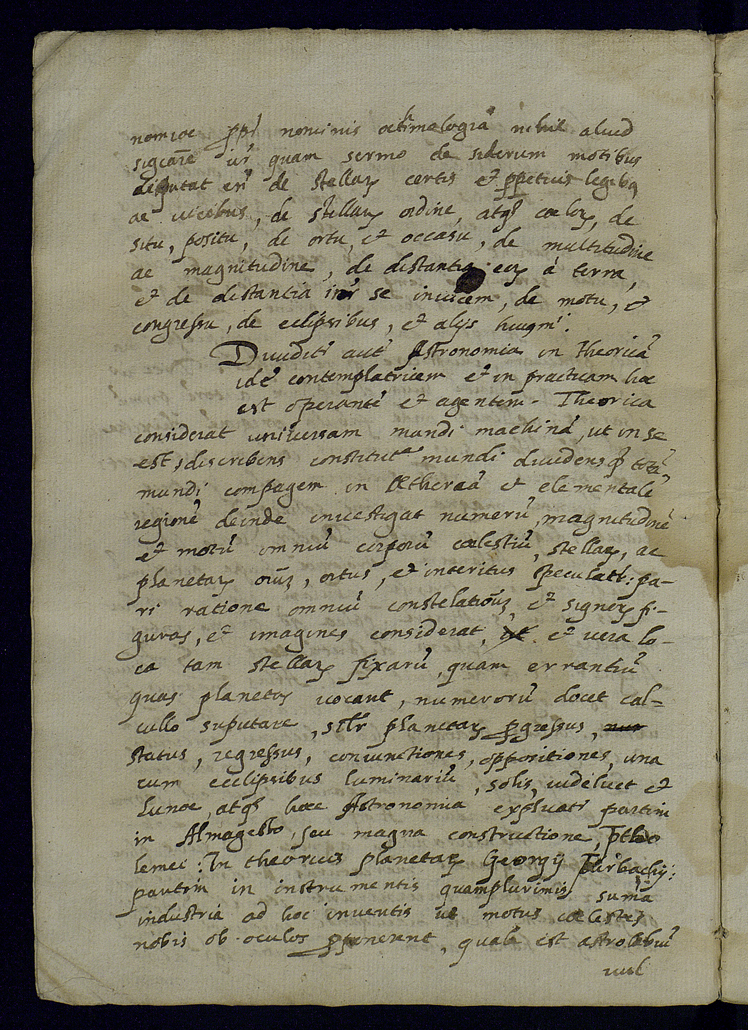 nomiae ppr nominis oethmalogiā nihil aliud
sigcare ur quam sermo de siderum motibus
disputat eñ de stellarꝫ certis et ppetuis legibꝫ
ac vicibus, de stellarꝫ ordine, atqꝫ coelorꝫ, de
situ, positu, de ortu, et occasu, de multitudine
ac magnitudine, de distantia eorꝫ à terra,
et de distantia inr se invicem, de motu, et
congressu, de eclipsibus, et alijs huiqm̄i.
Dividitr aut Astronomia in theoricā
idē contemplatricem et in practicam hoc
est operantē et agentem. Theorica
considerat universam mundi machinā, ut in se
est, discribens constitutē mundi dividensqꝫ totā
mundi compagem in Aetheream et elementalē
regionē deinde investigat numerū, magnitudinē
et motū omniū corporū coelestiū, stellarꝫ, ac
planetarꝫ oiūs, ortus, et interitus speculatr: pa-
ri ratione omniū constelatioūs, et signorꝫ fi-
guras, et imagines considerat, et vera lo-
ca tam stellarꝫ fixarū, quam errantiū
quas planetas vocant, numerorū docet cal-
cullo suputare, silr planetarꝫ pgressus,
status, regressus, coniunctiones, oppositiones, una
cum ecclipsibus luminariū, solis videlicet et
Lunae, atqꝫ haec Astronomia explicatr partim
in Almagesto, seu magna constructione, Ptho
lemei: In theoricis planetarꝫ Georgij Purbachij:
partim in instrumentis quamplurimis sumā
industria ad hoc inventis ut motus coelestes
nobis ob oculos pponerent, quale est astrolabiū